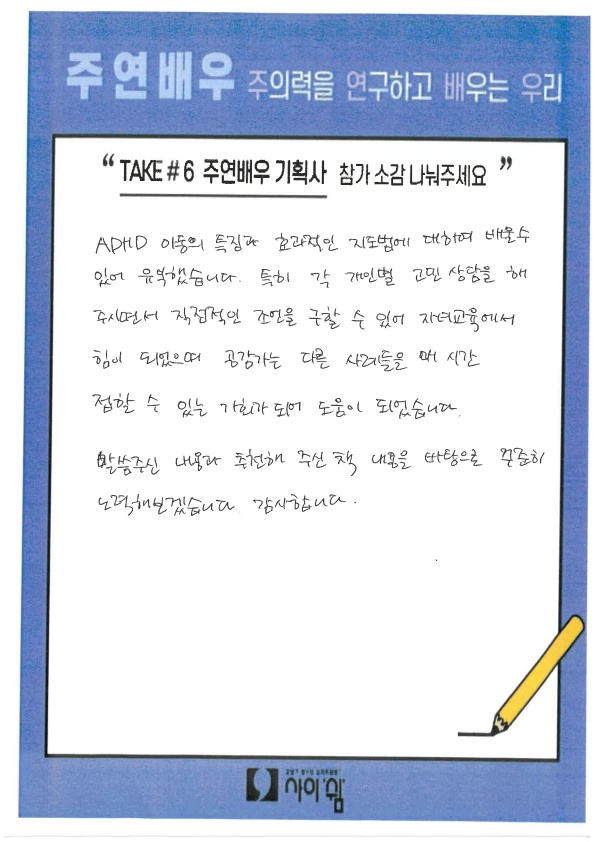 주연배우 주의력을 연구하고 배우는 우리
“ TAKE # 6 주연배우 기획사 참가 소감 나눠주세요 ”
ADHD 아동의 특징과 효과적인 지도법에 대하여 배울수
있어 유익했습니다. 특히 각 개인별 고민 상담을 해
주시면서 직접적인 조언을 구할 수 있어 자녀교육에서
힘이 되었으며 공감가는 다른 사례들을 매 시간
접할 수 있는 기회가 되어 도움이 되었습니다.
말씀주신 내용과 추천해 주신 책 내용을 바탕으로 꾸준히
노력해보겠습니다. 감사합니다.
사이쉼